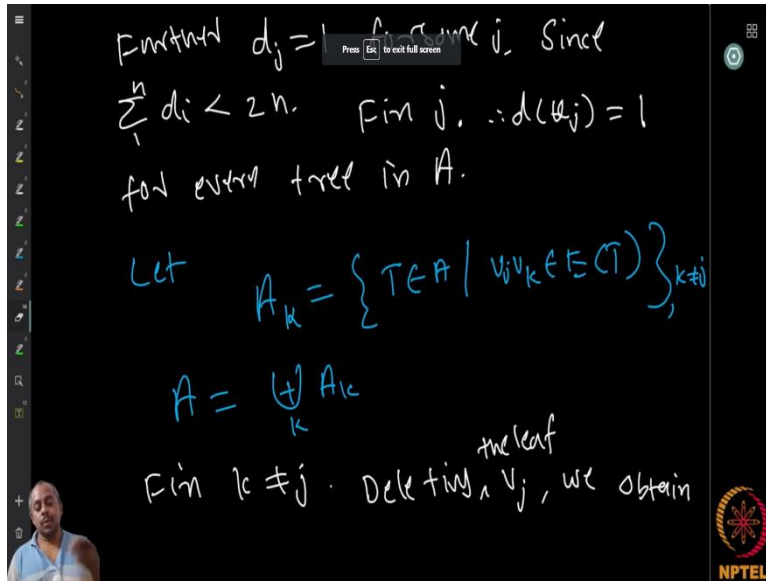 Further d_j = 1 for some j. Since
Press Esc to exit full screen
\sum_1^n d_i < 2n. Fix j. ∴ d(v_j) = 1
for every tree in A.
Let
A_k = { T ∈ A | v_j v_k ∈ E(T) }, k≠j
A = ⊎_k A_k
the leaf
Fix k ≠ j. Deleting ‸ v_j, we obtain
NPTEL